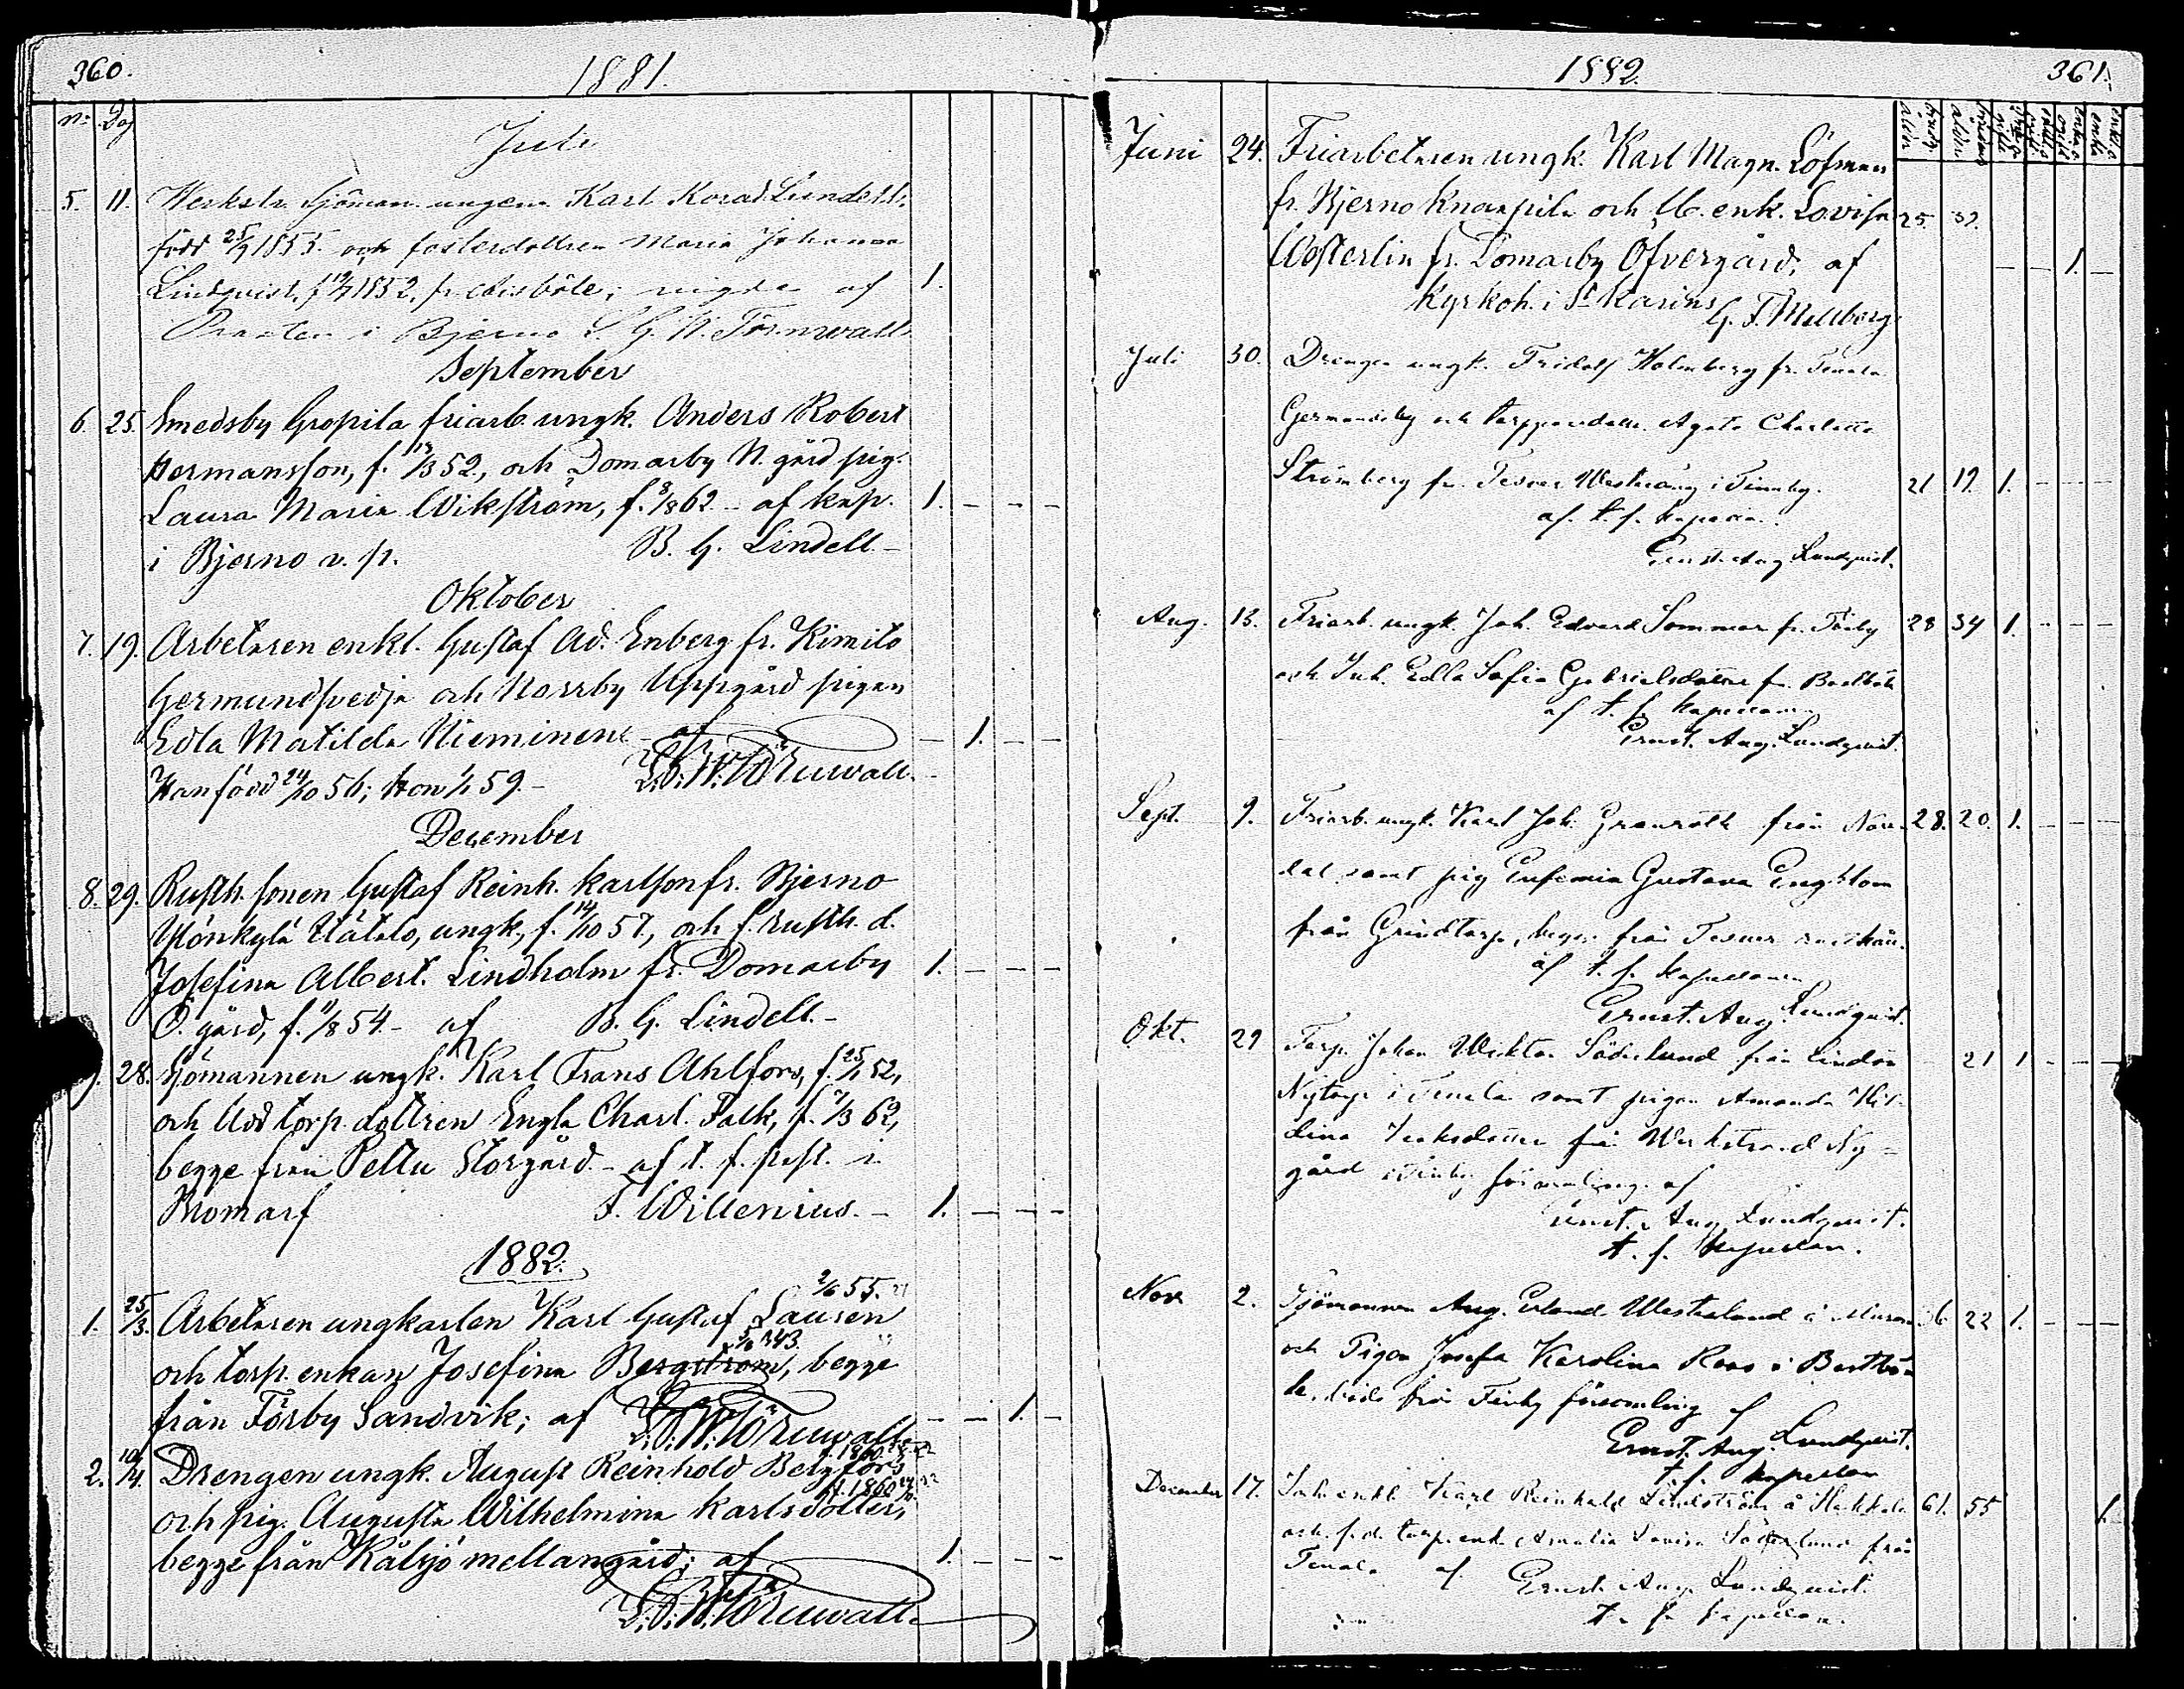 360.
1881.
No Dag
Juli
5. 11. Werkstr. Sjöman. ungem. Karl Korad Lundell,
född 25/9 1855. och fosterdottren Maria Johanna
Lindqvist, f. 1852, fr. ; vigde af 1.
Prosten i Bjerno L. G. W. Törnwall.
September
6. 25. Smedsby Gropila friarb. ungk. Anders Robert
Hermansson, f. 13/3 52., och Domarby N. gård pig.
Laura Maria Wikström, f. 8/8 62 - af kap. 1. - - -
i Bjerno v. p. B. G. Lindell -
Oktober
7. 19. Arbetaren enkl. Gustaf Ad. Enberg fr. Kimito
Germundsvedja och Norrby Uppgård pigan
Edla Matilda Nieminen - af - 1. - -
Han född 24/10 56; Hon 1/1 59. - L. G. W. Törnwall.
December
8. 29. Rusth. sonen Gustaf Reinh. Karlson fr. Bjerno
Ylönkylä Uätalo, ungk., f. 14/10 57, och f. rusth. d.
Josefina Albert. Lindholm fr. Domarby 1. - - -
Ö. gård, f. 11/8 54. - af B. G. Lindell. -
9. 28. Sjömannen ungk. Karl Frans Ahlfors, f. 25/1 52,
och Uddtorp. dottren Engla Charl. Falk, f. 7/3 62,
begge från Pettu Storgård. - af t. f. past. i
Bromarf F. Willenius. - 1. - - -
1882.
2/6 55.
1. 25/3. Arbetaren ungkarlen Karl Gustaf Lausen
343.
och torp. enkan Josefina Bergström, begge
från Förby Sandvik; af L. G. W. Törnwall. - - 1. -
f. 1860
2. 10/4. Drengen ungk. August Reinhold Bergfors
f. 1860
och pig. Augusta Wilhelmina Karlsdotter,
begge från Kälsjö mellangård; af 1. - - -
L. G. W. Törnwall.
1882.
361.
Juni 24. Friarbetaren ungk. Karl Magn. Löfman
fr. Bjerno Knaapila och enk. Lovisa 25. 32.
Westerlin fr. Domarby Öfvergård, af - - 1. -
Kyrkoh. i St Karins G. F. Mellberg
Juli 30. Drengen ungk. Fridolf Holmberg fr. Tenala
Germundsby och torparedottr. Agata Charlotta
Strömberg fr. Tesver Westeräng i Finnby. 21 19. 1. - - -
af. t. f. kapellan.
Ernst Aug. Lundqvist.
Aug. 13. Friarb. ungk. Joh. Edvard Sommar fr. Förby 28 34 1. - - -
och Inh. Edla Sofia Gabrielsdotter fr.
af t. f. kapellanen
Ernst. Aug. Lundqvist.
Sept. 9. Friarb. ungk. Karl Joh. Granroth från Norr- 28. 20. 1. - - -
dal samt pig. Eufemia Gustava Engblom
från Grindtorp, begge från Tesver
af t. f. kapellanen
Ernst. Aug. Lundqvist.
Okt. 29 Torp. Johan Wiktor Söderlund från Lindön 21 1 - - -
Nytorp i Tenala samt pigan Amanda Wil-
lina Isaksdotter från Werkstrand Ny-
gård i Finby församling. af
Ernst. Aug. Lundqvist.
t. f. kapellan.
Nov 2. Sjömannen Aug. Erland Westerlund å 22 1. - - -
och Pigan Josefa Karolina Roos i Bastbö-
le, båda från Finby församling af
Ernst. Aug. Lundqvist.
t. f. kapellan
December 17. Inh. enkl. Karl Reinhold Lindström å 61. 55 1.
och f. d. torp. enk. Amalia Lovisa Söderlund från
Tenala af Ernst. Aug. Lundqvist.
t. f. kapellan.